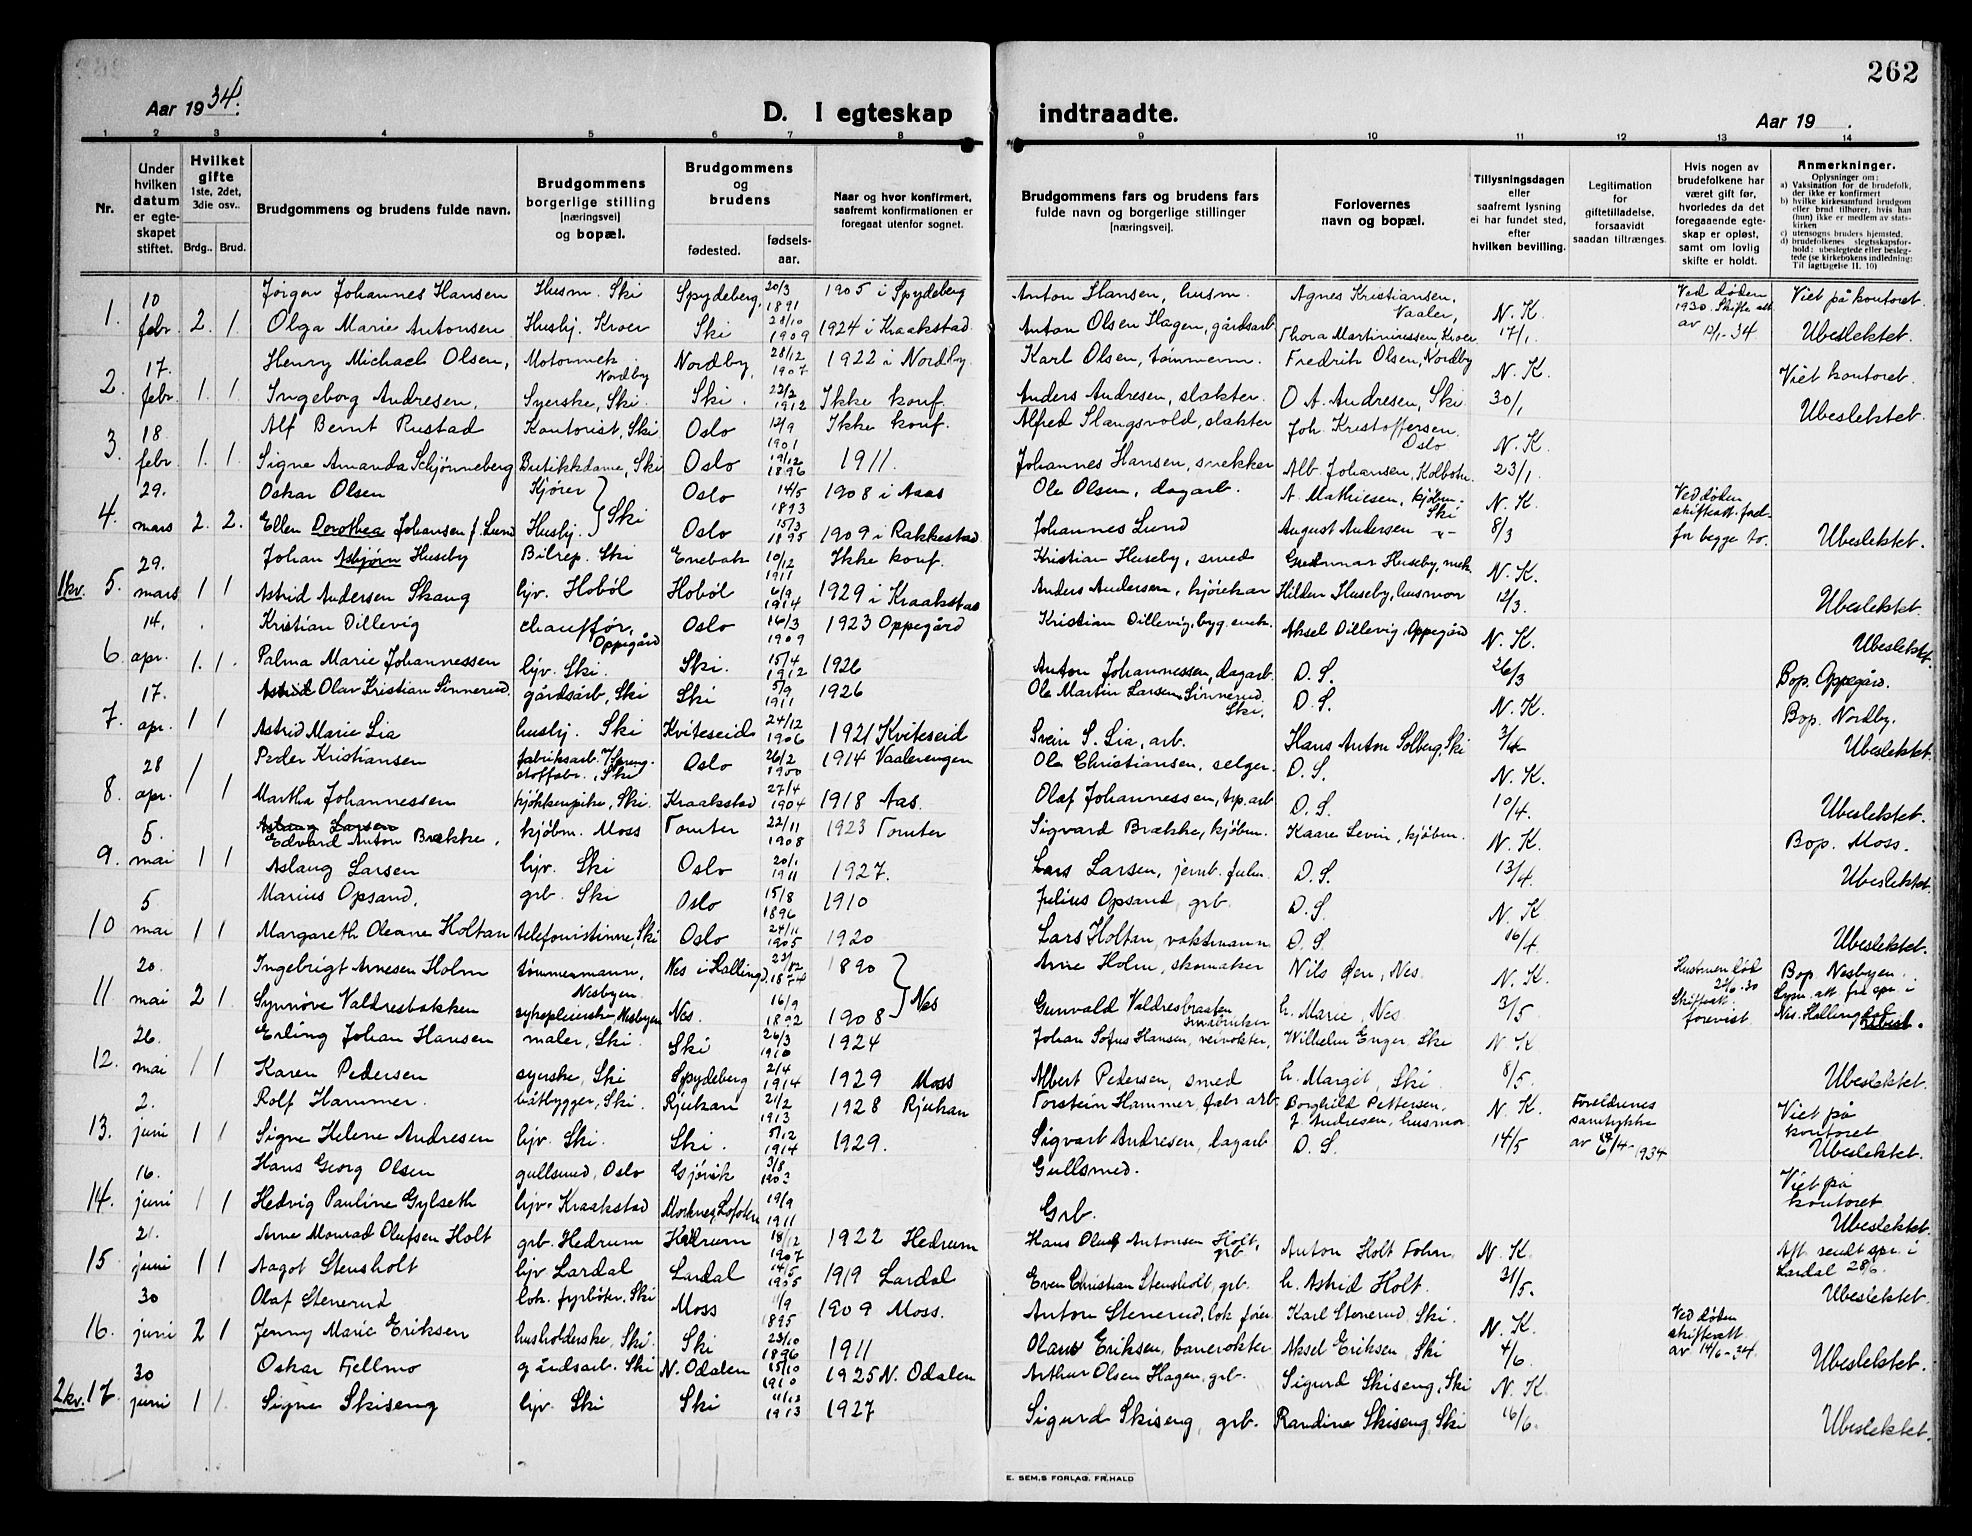 262
Aar 1934.
D. I egteskap indtraadte.
Aar 19   .
1 2 3 4 5 6 7 8 9 10 11 12 13 14
Nr.
Under hvilken datum er egteskapet stiftet.
Hvilket gifte 1ste, 2det, 3die osv..
Brdg.. Brud.
Brudgommens og brudens fulde navn.
Brudgommens borgerlige stilling [næringsvei] og bopæl.
Brudgommens og brudens
fødested.
fødsels-aar.
Naar og hvor konfirmert, saafremt konfirmationen er foregaat utenfor sognet.
Brudgommens fars og brudens fars fulde navn og borgerlige stillinger [næringsvei].
Forlovernes navn og bopæl.
Tillysningsdagen eller saafremt lysning ei har fundet sted, efter hvilken bevilling.
Legitimation for giftetilladelse, forsaavidt saadan tiltrænges.
Hvis nogen av brudefolkene har været gift før, hvorledes da det foregaaende egteskap er opløst, samt om lovlig skifte er holdt.
Anmerkninger.
Oplysninger om:
a) Vaksination for de brudefolk, der ikke er konfirmert
b) hvilke kirkesamfund brudgom eller brud tilhører, hvis han (hun) ikke er medlem av statskirken
c) utensogns bruders hjemsted.
d) brudefolkenes slegtsskapsforhold: ubeslegtede eller beslegtede (se kirkebokens indledning: Til iagttagelse II. 10)
1. 10 febr 2. 1. Jørgen Johannes Hansen Husm. Ski Spydeberg, 20/3 1891 1905 i Spydeberg Anton Hansen, husm. Agnes Kristiansen, Vaaler, N. K. 17/1 Ved døden 1930. Skifte att av 12/1-34 Viet på kontoret.
Olga Marie Antonsen Husbj. Kroer Ski 28/10 1909 1924 i Kraakstad Anton Olsen Hagen, gårdsarb Thora Martiniussen, Kroer Ubeslektet.
2. 17. febr. 1. 1. Henry Michael Olsen, Motormek. Nordby Nordby, 28/12 1907 1922 i Nordby. Karl Olsen, tømmerm. Fredrik Olsen, Nordby N. K. 30/1 Viet kontoret.
Ingeborg Andresen, Syerske, Ski. Ski. 22/2 1912 Ikke konf. Anders Andresen, slakter. O. A. Andresen, Ski Ubeslektet.
3. 18 febr 1. 1. Alf Bernt Rustad Kontorist, Ski Oslo 12/9 1901 Ikke konf. Alfred Slangsvold, slakter Joh. Kristoffersen. Oslo N. K. 23/1
Signe Amanda Schjønneberg Butikkdame, Ski Oslo 19/12 1896 1911. Johannes Hansen, snekker Alb. Johansen, Kolbotn.
4. 29. mars 2. 2. Oskar Olsen Kjører Ski Oslo 14/5 1893 1908 i Aas Ole Olsen, dagarb. A. Mathiesen, kjøbm. Ski N. K. 8/3 Ved døden skifteatt. fored- for begge to.
Ellen Dorothea Johansen f. Lund Husbj. Oslo 15/3 1895 1909 i Rakkestad Johannes Lund August Andersen -"- Ubeslektet.
1 kv. 5. 29. mars 1 1 Johan Asbjørn Huseby Bilrep. Ski Enebak 10/12 1911 Ikke konf. Kristian Huseby, smed Gudmnar Huseby, mek. N. K. 12/3.
Astrid Andersen Skaug hjv. Hobøl Hobøl 6/9 1914 1929 i Kraakstad Anders Andersen, kjørekar Hilden Huseby, husmor Ubeslektet.
6 14. apr. 1. 1. Kristian Dillevig chauffør, Oppegård Oslo 16/3 1909 1923 Oppegård Kristian Dillevig, byg. snek. Aksel Dillevig, Oppegård N. K. 26/3 Ubeslektet.
Palma Marie Johannessen hjv. Ski. Ski. 15/4 1912 1926 Anton Johannessen, dagarb. D. S. Bop. Oppegård.
7 17. apr. 1 1 Olav Kristian Sinnerud. gårdsarb, Ski Ski 5/9 1911 1926 Ole Martin Larsen Sinnerud Ski. D. S. N. K. 3/4 Bop. Nordby.
Astrid Marie Lia husbj. Ski Kviteseid 24/12 1906 1921 Kviteseid Svein S. Lia, arb. Hans Anton Solberg, Ski Ubeslektet.
8 28 apr. 1 1 Peder Kristiansen fabriksarb. v/Spreng- stoffabr., Ski Oslo 26/2 1900 1914 Vaalerengen Ole Christiansen, selger. D. S. N. K. 10/4.
Martha Johannessen kjøkkenpike, Ski. Kraakstad 27/4 1904 1918 Aas. Olaf Johannessen, trp. arb D. S. Ubeslektet.
9. 5. mai 1 1 Aslaug Larsen Edvard Anton Brække, kjøbm. Moss Tomter 22/11 1908 1923 Tomter Sigvard Brække, kjøbm. Kaare Levin, kjøbm. N. K. 13/4. Bop. Moss.
Aslaug Larsen hjv. Ski Oslo 20/1 1911 1927. Lars Larsen, jernb. fulm. D. S. Ubeslektet.
10 5 mai 1 1 Marius Opsand, grb. Ski Oslo 15/8 1896 1910 Julius Opsand, grb. D. S. N. K. 16/4
Margareth Oleane Holtan telefonistinne, Ski Oslo 24/11 1905 1920 Lars Holtan, vaktmann D. S. Ubeslektet.
11 20. mai 2 1. Ingebrigt Arnesen Holm tømmermann, Nesbyen Nes i Halling. 1874 1890 Nes Arne Holm, skomaker Nils Øen, Nes. N. K. 3/5 Hustruen død 22/6-30 Skifteatt. forevist. Bop. Nesbyen.
Synnøve Valdresbakken sykepleierske Nesbyen Nes. 16/9 1892 1908 Gunvald Valdresbraaten småbruker h. Marie, Nes Lysn. att. fra spr. i Nes. Hallingdal Ubesl.
12. 26. mai 1 1 Erling Johan Hansen maler, Ski. Ski 26/3 1910 1924 Johan Sofus Hansen, veivokter, Wilhelm Enger, Ski N K 8/5.
Karen Pedersen syerske, Ski Spydeberg 2/4 1914 1929 Moss Albert Pedersen, smed h. Margit, Ski. Ubeslektet.
13. 2. juni 1 1 Rolf Hammer. båtbygger, Ski. Rjukan 21/2 1913 1928 Rjukan Torstein Hammer, fabr arb. Borghild Pettersen, J. Andresen, husmor N. K. 14/5 Foreldrenes samtykke av 6/4-1934 Viet på kontoret
Signe Helene Andresen hjv. Ski. Ski. 5/12 1914 1929. Sigvart Andresen, dagarb D. S. Ubeslektet.
14. 16. juni 1 1 Hans Georg Olsen gullsmed, Oslo Gjøvik 3/8 1903 Gullsmed. Viet på kontoret
Hedvig Pauline Gylseth hjv. Kraakstad Lofoten 19/9 1911 Grb. Ubeslektet.
15 21. juni 1 1 Arne Monrad Olufsen Holt grb. Hedrum Hedrum 18/12 1907 1922 Hedrum Hans Oluf Antonsen Holt, grb Anton Holt N. K. 31/5. Att. sendt spr. i Lardal 28/6.
Aagot Stensholt hjv Lardal Lardal 14/5 1905 1919 Lardal Even Christian Stensholt, grb. h. Astrid Holt. Ubeslektet.
16. 30 juni 2 1 Olaf Stenerud lok. fyrbøter, Ski Moss 11/9 1895 1909 Moss. Anton Stenerud, lok. fører Karl Stenerud, Ski. N. K. 4/6. Ved døden skifteatt. av 14/6-34.
Jenny Marie Eriksen husholderske, Ski. Ski 23/10 1896 1911 Olaus Eriksen, banevokter Aksel Eriksen, Ski Ubeslektet.
2 kv. 17. 30 juni 1 1. Oskar Fjellmo gårdsarb. Ski N. Odalen 15/10 1910 1925 N. Odalen Arthur Olsen Hagen, grb. Sigurd Skiseng, Ski N. K. 16/6
Signe Skiseng hjv. Ski Ski 11/12 1913 1927 Sigurd Skiseng, grb. Randine Skiseng, Ski Ubeslektet.
E. SEM.S FORLAG. FR.HALD